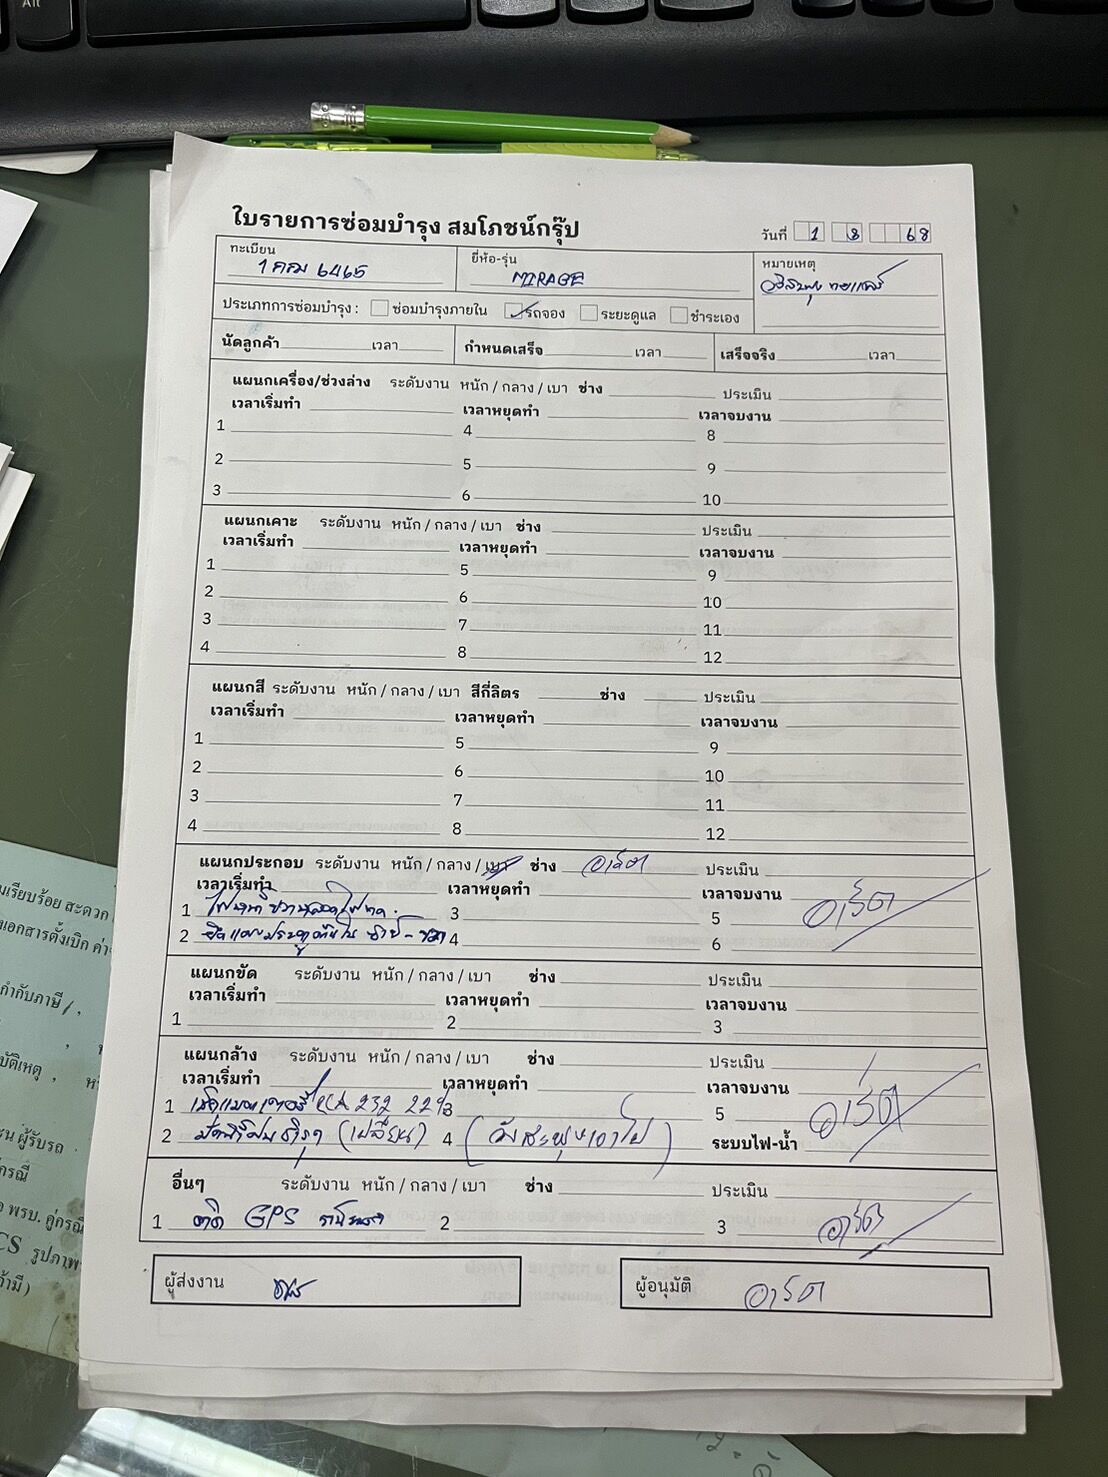 Alt
ใบรายการซ่อมบำรุง สมโภชน์กรุ๊ป
วันที่ 1 8 68
ทะเบียน 1 6465
ยี่ห้อ-รุ่น MIRAGE
หมายเหตุ
ประเภทการซ่อมบำรุง : ซ่อมบำรุงภายใน รถจอง ระยะดูแล ชำระเอง
นัดลูกค้า เวลา กำหนดเสร็จ เวลา เสร็จจริง เวลา
แผนกเครื่อง/ช่วงล่าง ระดับงาน หนัก / กลาง / เบา ช่าง ประเมิน
เวลาเริ่มทำ เวลาหยุดทำ เวลาจบงาน
1 4 8
2 5 9
3 6 10
แผนกเคาะ ระดับงาน หนัก / กลาง / เบา ช่าง ประเมิน
เวลาเริ่มทำ เวลาหยุดทำ เวลาจบงาน
1 5 9
2 6 10
3 7 11
4 8 12
แผนกสี ระดับงาน หนัก / กลาง / เบา สีกี่ลิตร ช่าง ประเมิน
เวลาเริ่มทำ เวลาหยุดทำ เวลาจบงาน
1 5 9
2 6 10
3 7 11
4 8 12
แผนกประกอบ ระดับงาน หนัก / กลาง / เบา ช่าง อาร์ต ประเมิน
เวลาเริ่มทำ เวลาหยุดทำ เวลาจบงาน
1 3 5 อาร์ต
2 4 6
แผนกขัด ระดับงาน หนัก / กลาง / เบา ช่าง ประเมิน
เวลาเริ่มทำ เวลาหยุดทำ เวลาจบงาน
1 2 3
แผนกล้าง ระดับงาน หนัก / กลาง / เบา ช่าง ประเมิน
เวลาเริ่มทำ เวลาหยุดทำ เวลาจบงาน
1 เช็คแบตเตอรี่ CCA 232 22% 3 5 อาร์ต
2 (เปลี่ยน) 4 ระบบไฟ-น้ำ
อื่นๆ ระดับงาน หนัก / กลาง / เบา ช่าง ประเมิน
1 GPS 2 3 อาร์ต
ผู้ส่งงาน
ผู้อนุมัติ อาร์ต
มเรียบร้อย สะดวก
งเอกสารตั้งเบิก ค่า
กำกับภาษี
บัติเหตุ
น ผู้รับรถ
กรณี
พรบ. คู่กรณี
CS รูปภาพ
ถ้ามี)